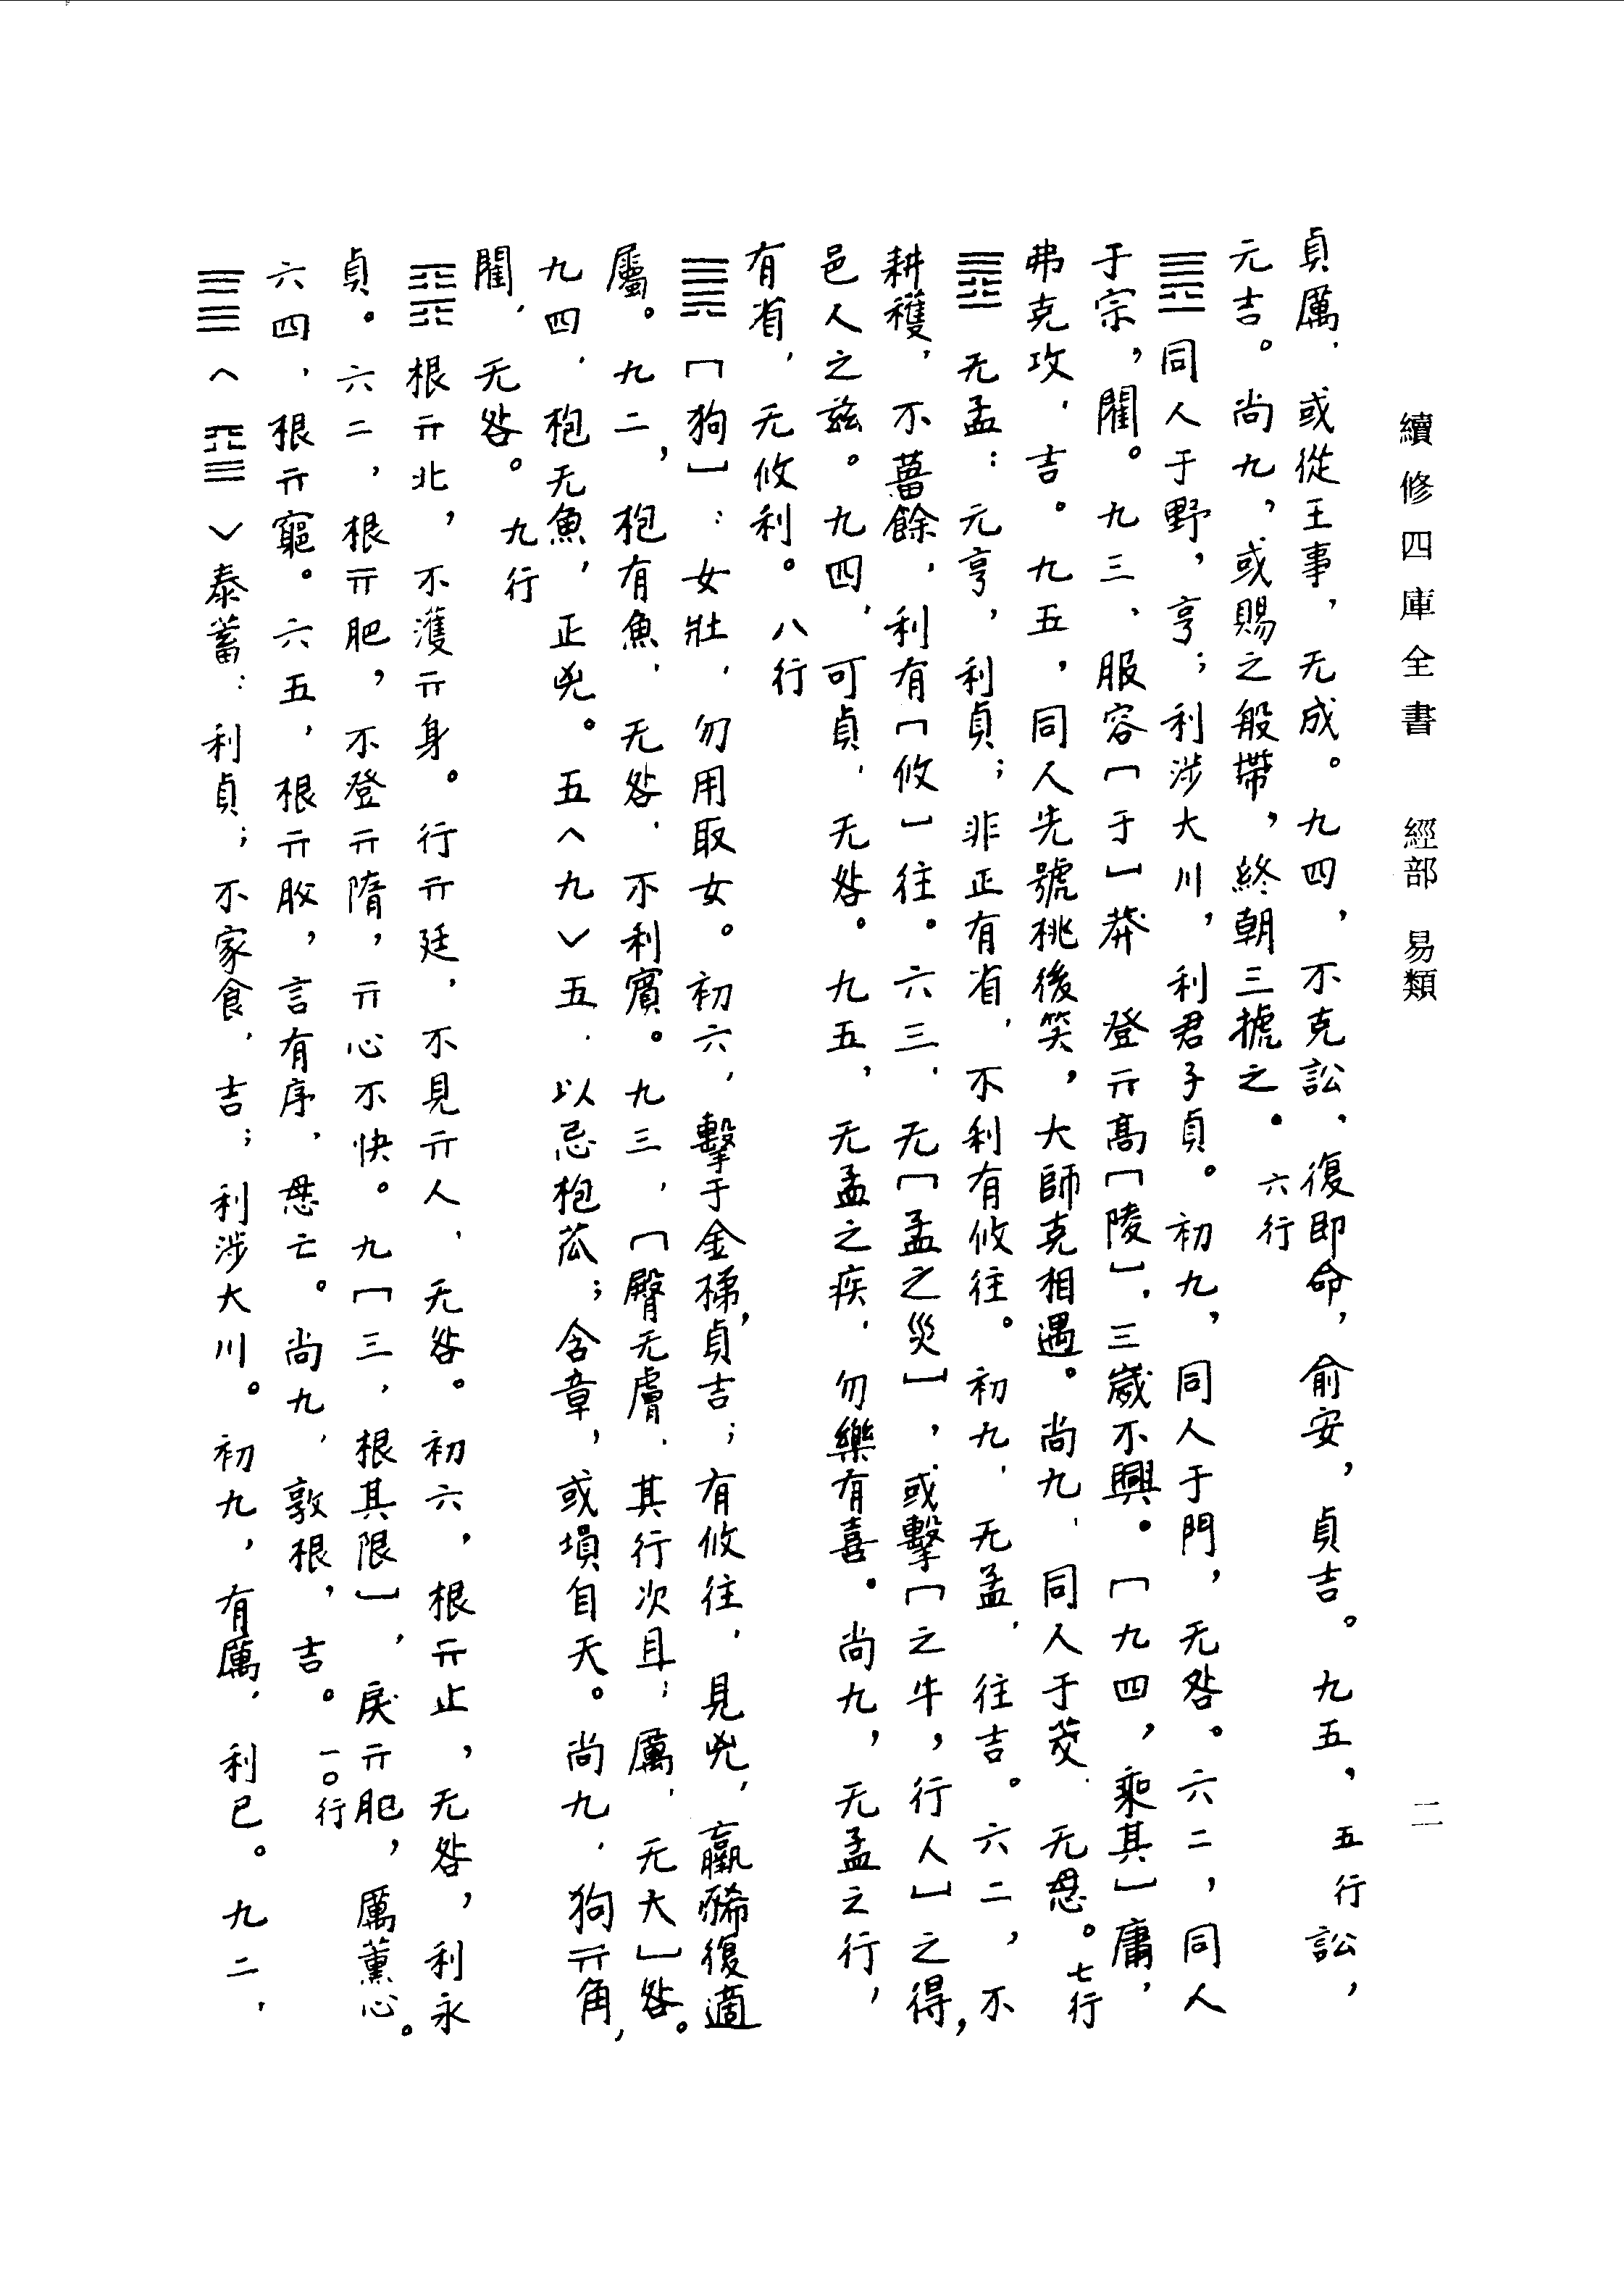 續修四庫全書　經部　易類
二
貞厲，或從王事，无成。九四，不克訟，復即命，俞安，貞吉。九五，五行訟，
元吉。尚九，或賜之般帶，終朝三摅之。六行
䷌同人于野，亨；利涉大川，利君子貞。初九，同人于門，无咎。六二，同人
于宗，閵。九三，服容［于］莽　登亓高［陵］，三歲不興。［九四，乘其］庸，
弗克攻，吉。九五，同人先號桃後笑，大師克相遇。尚九，同人于茭，无悬。七行
䷘无孟：元亨，利貞；非正有省，不利有攸往。初九，无孟，往吉。六二，不
耕穫，不菑餘，利有［攸］往。六三，无［孟之災］，或擊［之牛，行人］之得，
邑人之兹。九四，可貞，无咎。九五，无孟之疾，勿樂有喜。尚九，无孟之行，
有省，无攸利。八行
䷫［狗］：女壯，勿用取女。初六，擊于金梯，貞吉；有攸往，見兇，羸豨復適
屬。九二，枹有魚，无咎，不利賓。九三，［臀无膚，其行次且；厲，无大］咎。
九四，枹无魚，正兇。五〈九〉五，以忌枹苽；含章，或塤自天。尚九，狗亓角，
閵，无咎。九行
䷳根亓北，不濩亓身。行亓廷，不見亓人，无咎。初六，根亓止，无咎，利永
貞。六二，根亓肥，不登亓隋，亓心不快。九［三，根其限］，戾亓肥，厲薰心。
六四，根亓窮。六五，根亓胶，言有序，悬亡。尚九，敦根，吉。一〇行
䷀〈䷙〉泰蓄：利貞；不家食，吉；利涉大川。初九，有厲，利巳。九二，